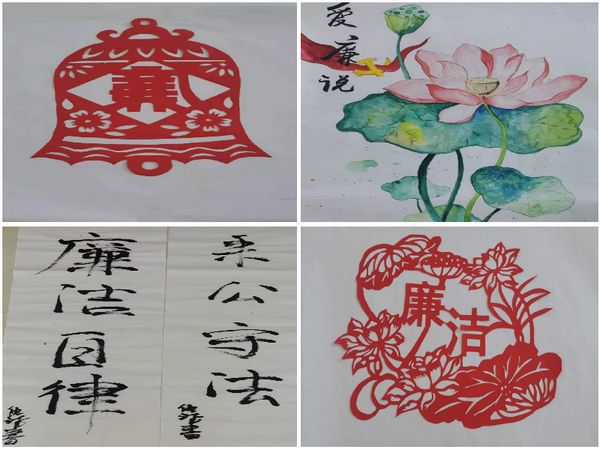 爱廉说
廉洁自律
秉公守法
廉洁